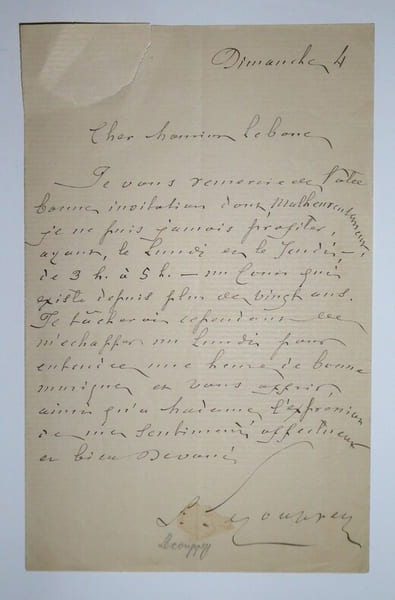 Dimanche 4
Cher Monsieur Lebouc
Je vous remercie de votre
bonne invitation dont Malheureusement
je ne puis jamais profiter,
ayant, le Lundi et le Jeudi,
de 3 h. à 5 h. — un Cours qui
existe depuis plus de vingt ans.
Je tâcherai cependant de
m'échapper un Lundi pour
entendre une heure de bonne
musique et vous offrir,
ainsi qu'à Madame l'expression
de mes Sentiments affectueux
et bien Dévoués
Lecouppey